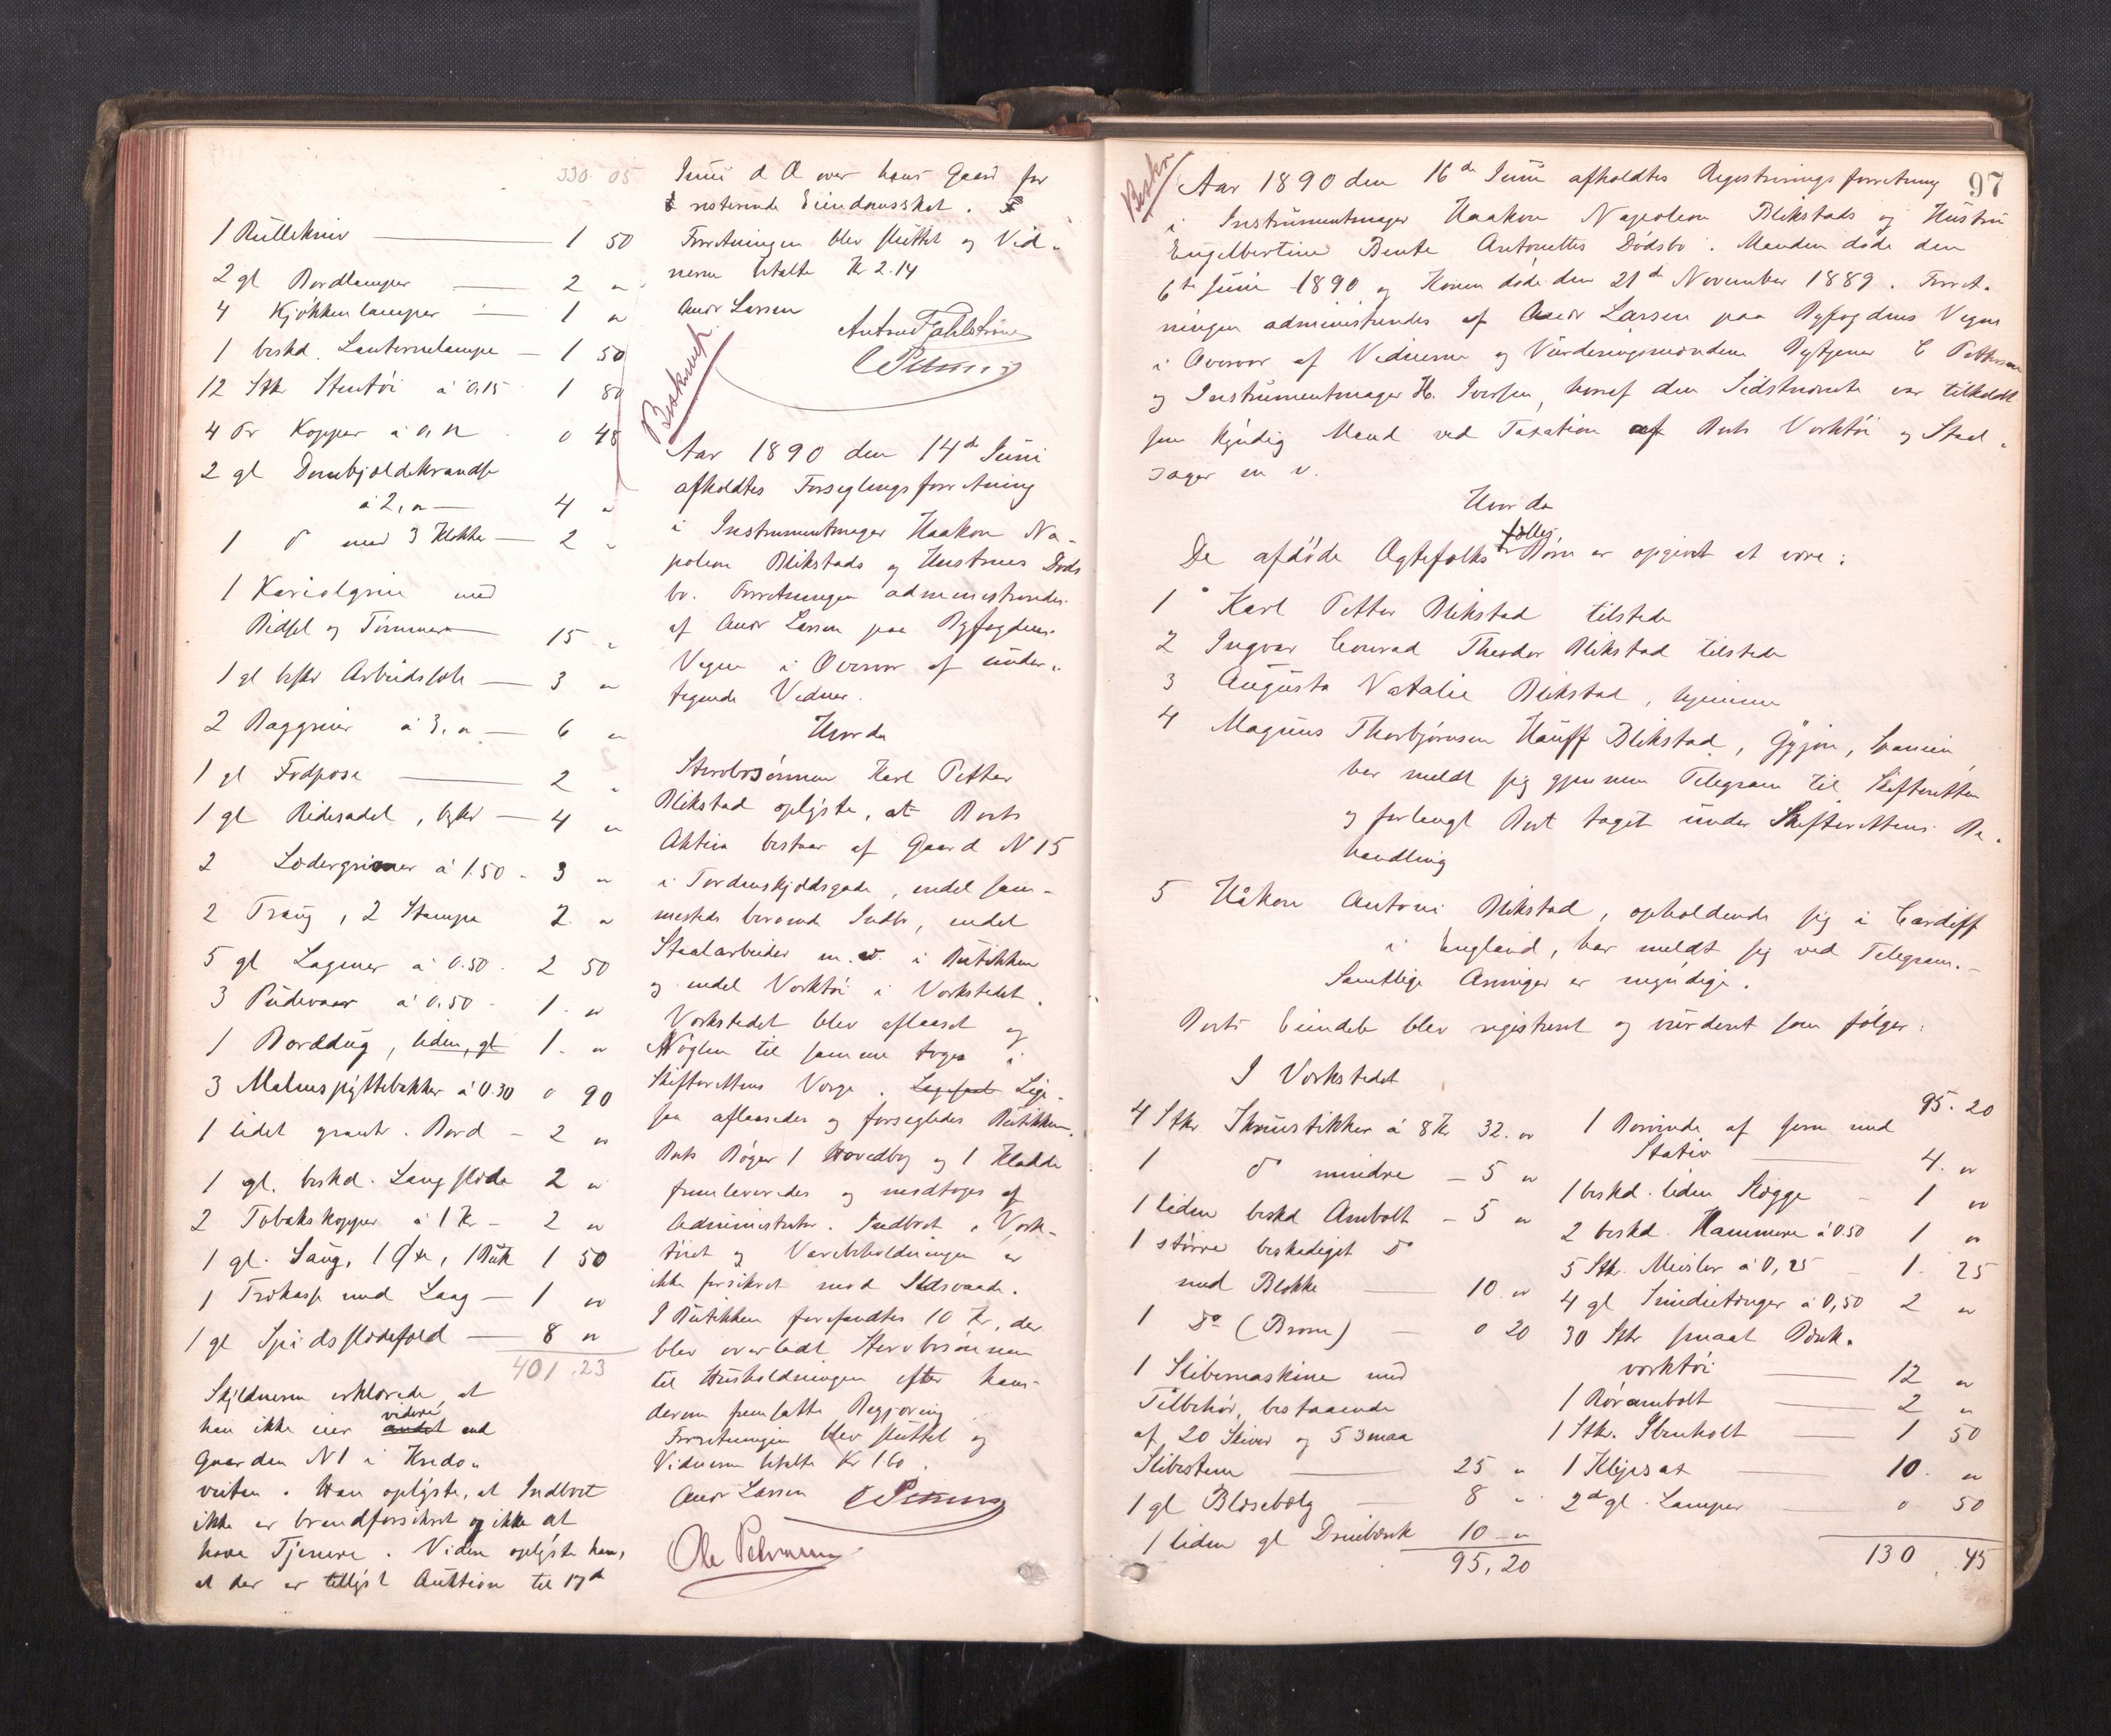 330 05
1 Rullekniv — 1 50
2 gl Bordlamper — 2 "
4 Kjøkkenlamper — 1 "
1 beskd. Lanternelampe — 1 50
12 Stk Stentøi à 0.15 1 80
4 Pr Kopper à 0,12 0 48
2 gl Dombjældekrandse
à 2,"— 4 "
1 do med 3 Klokker — 2 "
1 Kariolgrime med
Bidsel og Tømmer — 15 "
1 gl beskd Arbeidssele — 3 "
2 Baggrimer à 3," — 6 "
1 gl Fodpose — 2 "
1 gl Ridesadel, beskd — 4 "
2 Lædergrimer à 1.50 - 3 "
2 Traug, 2 Stamper 2 "
5 gl Lagener à 0.50 - 2 50
3 Pudevaar à 0.50 - 1 - "
1 Borddug, liden, gl 1 - "
3 Malmspyttebakker à 0.30 0 90
1 lidet grønt. Bord - 2 "
1 gl. beskd. Langslæde 2 "
2 Tobakskopper à 1 Kr - 2 "
1 gl. Saug, 1 Øxe, 1 Buk 1 50
1 Trækasse med Laag — 1 "
1 gl Spidsslædefæld — 8 "
401.23
Skyldneren erklærede, at
han ikke eier videre end
Gaarden N 1 i Hredo-
veiten. Han oplyste, at Indboet
ikke er brandforsikret og ikke at
have Tjenere. Videre oplyste han,
at der er tillyst Auktion til 17de
Juni d A over hans Gaard for
resterende Eiendomsskat.
Forretningen blev sluttet og Vid-
nerne betalte Kr 2.14
Andr Larsen
Anton Fahlstrøm
C Petersen
Beskrevet
Aar 1890 den 14de Juni
afholdtes Forseglingsforretning
i Instrumentmager Haakon Na-
poleon Blikstads og Hustrues Døds
bo. Forretningen administreredes
af Andr Larsen paa Byfogdens
Vegne i Overvær af under-
tegnede Vidner.
Hvorda
Stervbosønnen Karl Petter
Blikstad oplyste, at Boets
Aktiva bestaar af Gaard N 15
i Tordenskjoldsgade, endel sam-
mesteds beroende Indbo, endel
Staalarbeider m. v. i Butikken
og endel Verktøi i Verkstedet.
Verkstedet blev aflaaset og
Nøglen til samme toges i
Skifterettens Værge. Ligesaa Lige-
saa aflaasedes og forsegledes Butikken.
Boets Bøger 1 Hovedbog og 1 Kladde
fremleveredes og modtoges af
Administrator. Indboet, Verk-
tøiet og Varebeholdningen er
ikke forsikret mod Ildsvaade.
I Butikken forefandtes 10 Kr, der
blev overladt Stervbosønnen
til Husholdningen efter hans
derom fremsatte Begjæring
Forretningen blev sluttet og
Vidnerne betalte Kr 1.60.
Andr Larsen C Petersen
Ole Petersen
97
Beskr
Aar 1890 den 16de Juni afholdtes Registreringsforretning
i Instrumentmager Haakon Napoleon Blikstads og Hustru
Engelbertine Bente Antonettes Dødsbo. Manden døde den
6te Juni 1890 og Konen døde den 21de November 1889. Forret-
ningen administreredes af Andr Larsen paa Byfogdens Vegne
i Overvær af Vidnerne og Vurderingsmændene Bytjener C Pettersen
og Instrumentmager H. Iversen, hvoraf den Sidstnævnte var tilkaldt
som kyndig Mand ved Taxation af Boets Verktøi og Staal-
sager m v.
Hvorda
fælles
De afdøde Ægtefolks Børn er opgivet at være:
1 Karl Petter Blikstad tilstede
2 Ingvar Conrad Theodor Blikstad tilstede
3 Augusta Natalie Blikstad, hjemme
4 Magnus Thorbjørnsen Hauff Blikstad, Gyjon, Spanien,
har meldt sig gjennem Telegram til Skifteretten
og forlangt Boet taget under Skifterettens Be-
handling
5 Håkon Antoni Blikstad, opholdende sig i Cardiff
i England, har meldt sig ved Telegram.-
Samtlige Arvinger er myndige.
Boets Eiendele blev registreret og vurderet som følger:
I Verkstedet
4 Stkr Skruestikker à 8 Kr 32. "
1 do mindre — 5 "
1 liden beskd Ambolt - 5 "
1 større beskadiget do
med Blokke — 10. "
1 do (Brom) — 0 20
1 Slibemaskine med
Tilbehør, bestaaende
af 20 Skiver og 5 smaa
Slibestene — 25 "
1 gl Blæsebælg — 8 "
1 liden gl Dreiebænk 10 - "
95,20
95.20
1 Borvinde af Jern med
Stativ — 4. "
1 beskd. liden Slægge - 1 "
2 beskd. Hammere à 0.50 1 "
5 Stkr. Meisler à 0,25 — 1. 25
4 gl Smedietænger à 0,50 2 "
30 Stkr smaat Bænk-
verktøi — 12 "
1 Rørambolt — 2 "
1 Stk. Ibenholt — 1 50
1 Klipsax — 10. "
2 gl. Lamper — 0 50
130.45